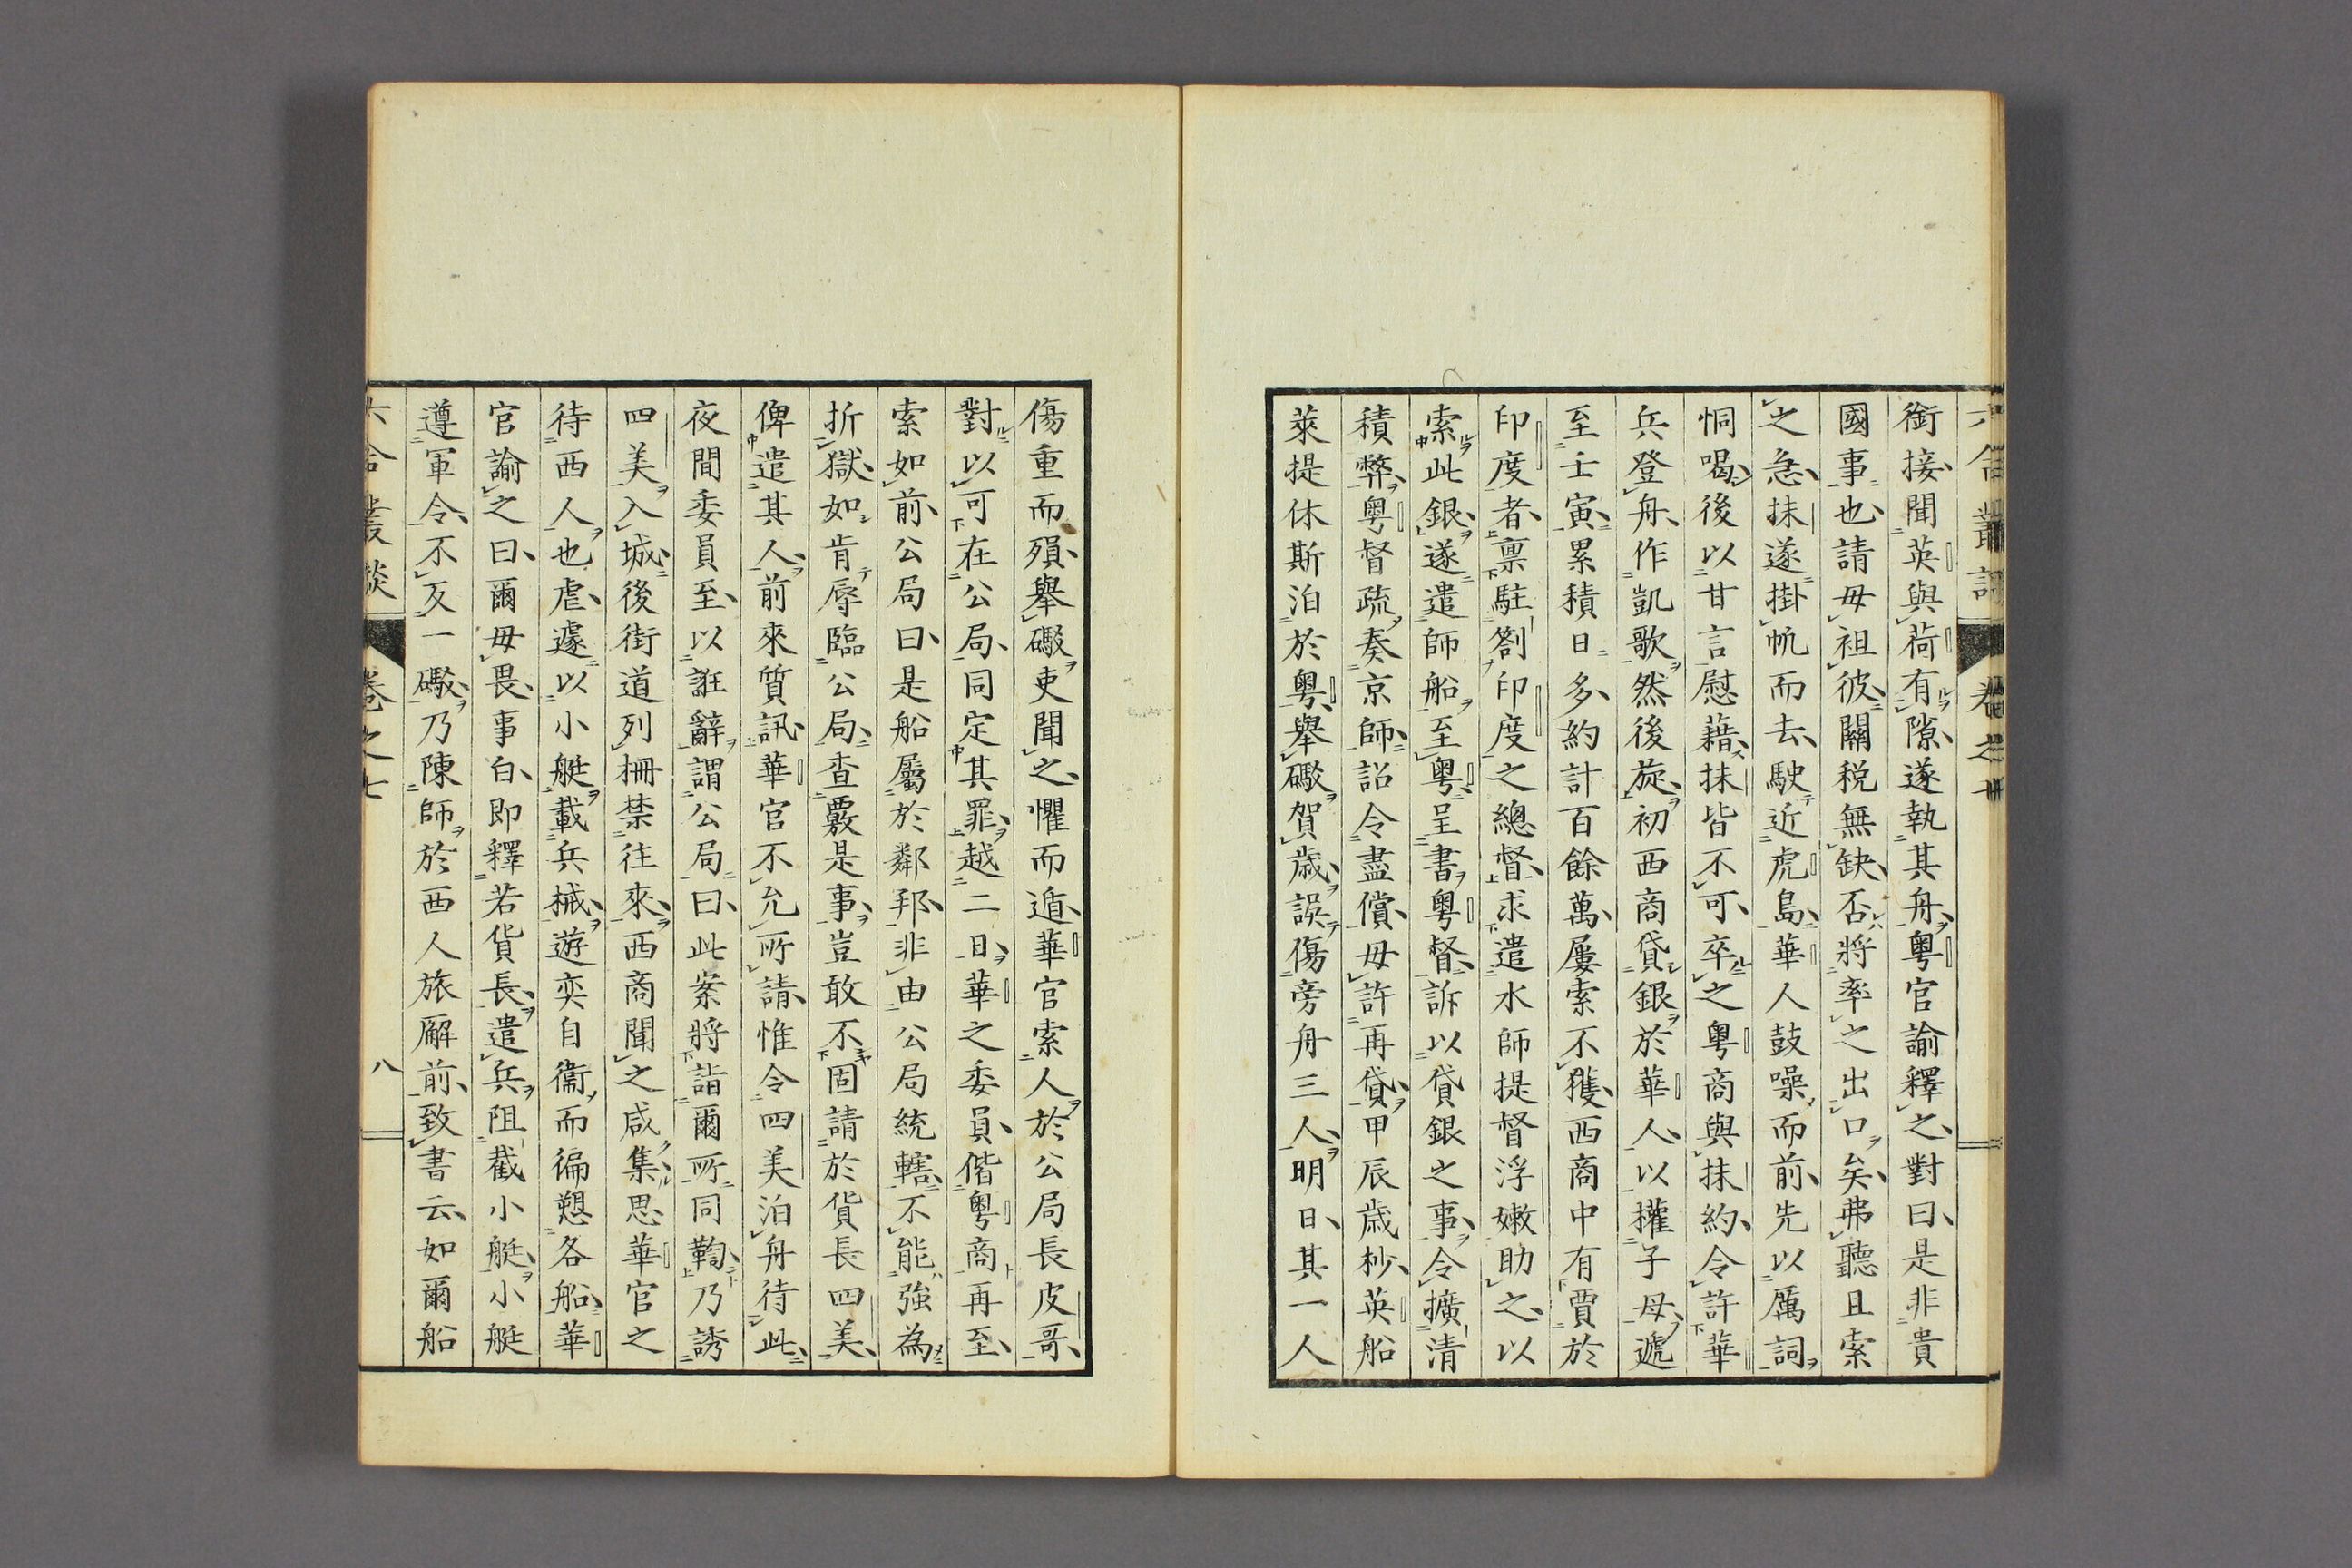 六合叢談
卷之七
銜接聞英與荷有隙遂執其舟粵官諭釋之對曰是非貴
國事也請毋袒彼關稅無缺否將率之出口矣弗聽且索
之急抹遂掛帆而去駛近虎島華人鼓噪而前先以厲詞
恫喝後以甘言慰藉抹皆不可卒之粵商與抹約令許華
兵登舟作凱歌然後旋初西商貸銀於華人以權子母遞
至壬寅累積日多約計百餘萬屢索不獲西商中有賈於
印度者禀駐劄印度之總督求遣水師提督浮嫩助之以
索此銀遂遣師船至粵呈書粵督訴以貸銀之事令擴清
積弊粵督疏奏京師詔令盡償毋許再貸甲辰歲杪英船
萊提休斯泊於粵舉礮賀歲誤傷旁舟三人明日其一人
傷重而殞舉礮吏聞之懼而遁華官索人於公局長皮哥
對以可在公局同定其罪越二日華之委員偕粵商再至
索如前公局曰是船屬於鄰邦非由公局統轄不能強為
折獄如肯辱臨公局查覈是事豈敢不固請於貨長四美
俾遣其人前來質訊華官不允所請惟令四美泊舟待此
夜間委員至以誑辭謂公局曰此案將詣爾所同鞫乃誘
四美入城後街道列柵禁往來西商聞之咸集思華官之
待西人也虐遽以小艇載兵械遊奕自衞而徧懇各船華
官諭之曰爾毋畏事白即釋若貨長遣兵阻截小艇小艇
遵軍令不反一礮乃陳師於西人旅廨前致書云如爾船
六合叢談
卷之七
八